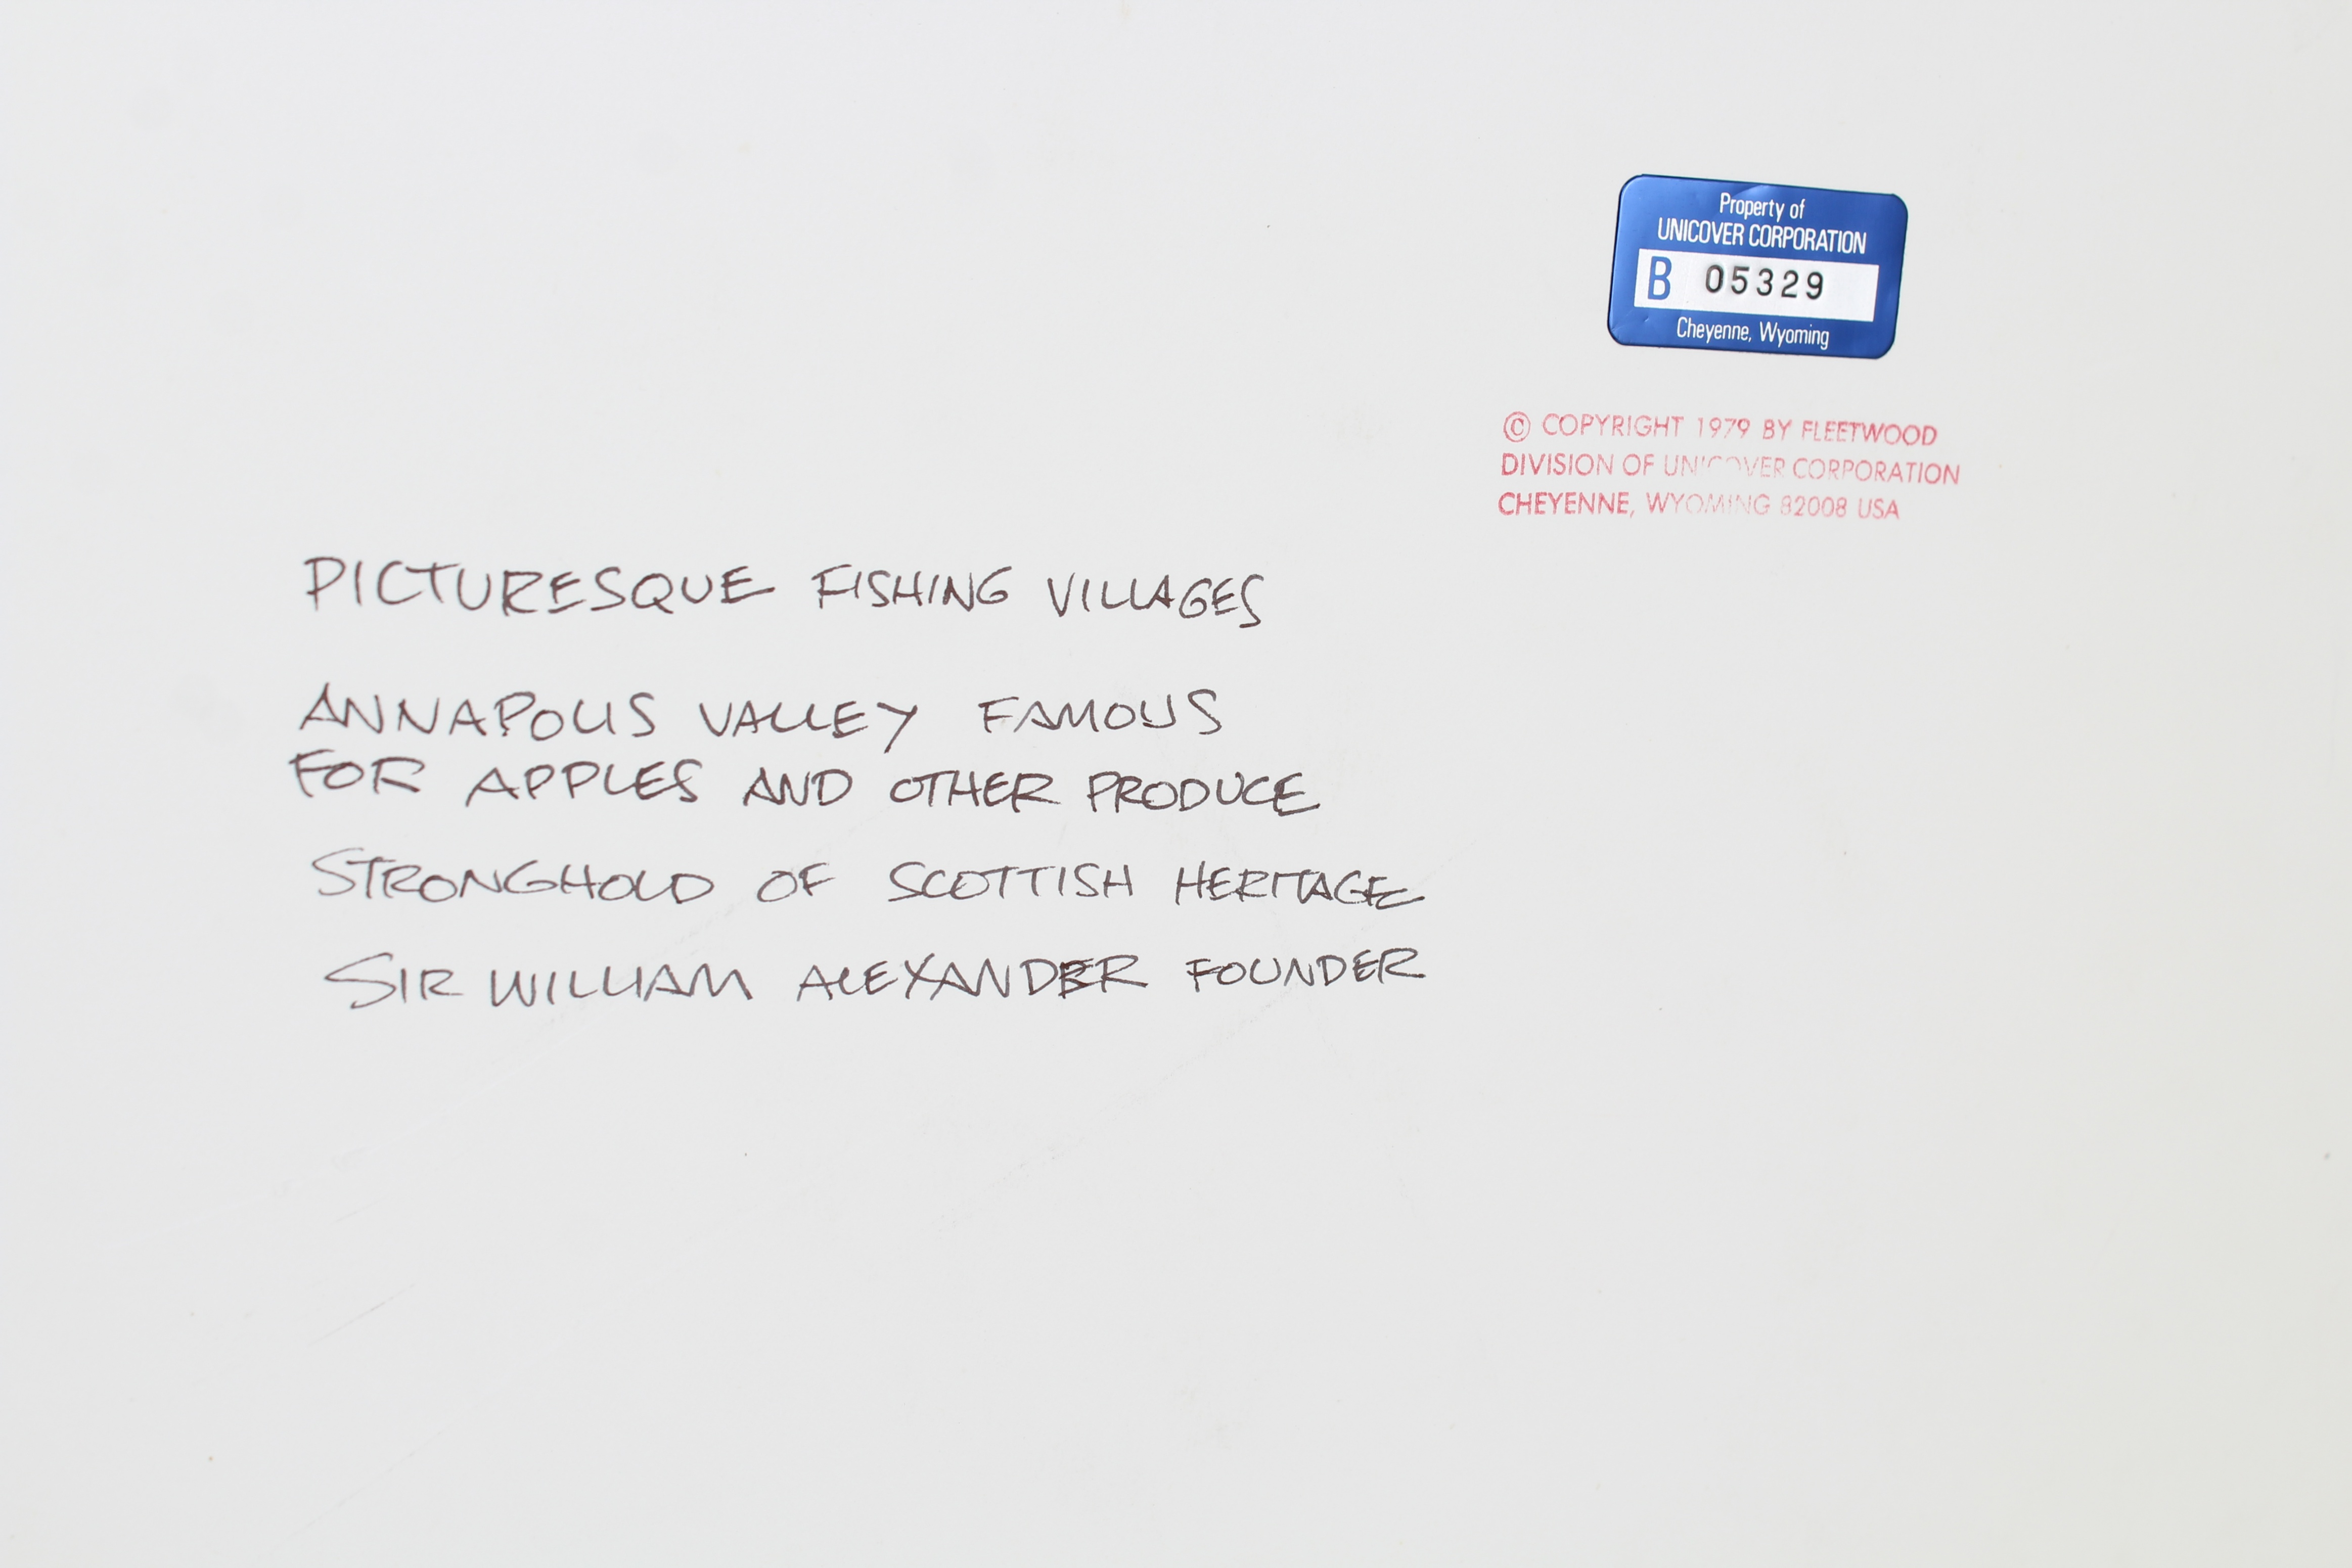 Property of
UNICOVER CORPORATION
B 05329
Cheyenne, Wyoming
© COPYRIGHT 1979 BY FLEETWOOD
DIVISION OF UNICOVER CORPORATION
CHEYENNE, WYOMING 82008 USA
PICTURESQUE FISHING VILLAGES
ANNAPOLIS VALLEY FAMOUS
FOR APPLES AND OTHER PRODUCE
STRONGHOLD OF SCOTTISH HERITAGE
SIR WILLIAM ALEXANDER FOUNDER